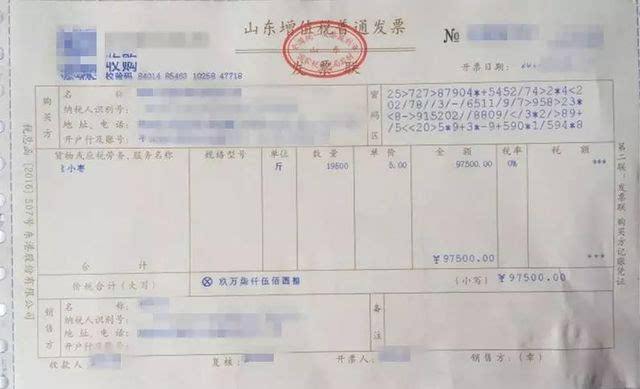 山东增值税普通发票
№
收购
发票联
山东
校验码 84014 85463 10258 47718
开票日期:
购买方
名称:
纳税人识别号:
地址、电话
开户行及账号:
密码区
25>727>87904*+5452/74>2*4<2
02/78//3/-/6511/9/7>958>23*
<8->915202//8809/<3*2/>89+
/5<<20>5*9+3*-9+590*1/594*8
货物或应税劳务、服务名称 规格型号 单位 数量 单价 金额 税率 税额
小枣 斤 19500 5.00 97500.00 0% ***
合计 ¥97500.00 ***
价税合计(大写) ⊗玖万柒仟伍佰圆整 (小写) ¥97500.00
销售方
名称:
纳税人识别号:
地址、电话:
开户行及账号:
备注
收款人: 复核: 开票人: 销售方:(章)
第二联:发票联 购买方记账凭证